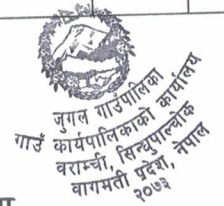 जुगल गाउँपालिका
गाउँ कार्यपालिकाको कार्यालय
बराम्ची, सिन्धुपाल्चोक
बागमती प्रदेश, नेपाल
२०७३